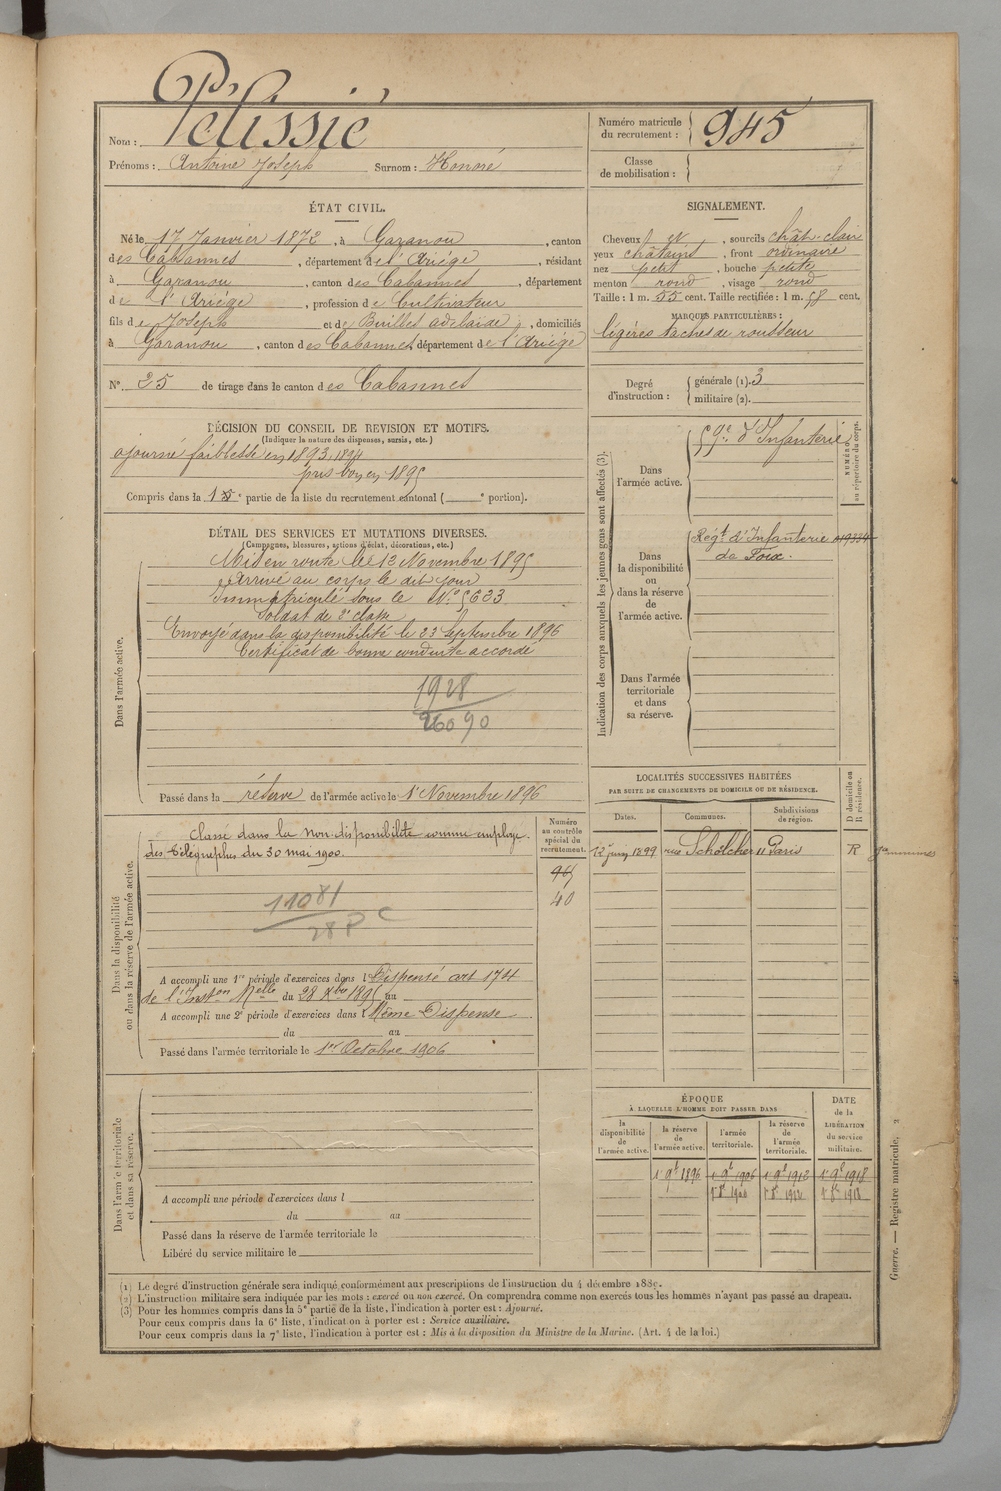 Pélissié
Nom :
Prénoms : Antoine Joseph Surnom : Honoré
Numéro matricule
du recrutement : 945
Classe
de mobilisation :
ÉTAT CIVIL.
Né le 17 Janvier 1872, à Garanou, canton
des Cabannes, département de l'Ariège, résidant
à Garanou, canton des Cabannes, département
de l'Ariège, profession de Cultivateur
fils de Joseph et de adélaide, domiciliés
à Garanou, canton des Cabannes, département de l'Ariège
N° 25 de tirage dans le canton des Cabannes
SIGNALEMENT.
Cheveux, sourcils chât-clair
yeux châtains, front ordinaire
nez petit, bouche petite
menton rond, visage rond
Taille : 1 m. 55 cent. Taille rectifiée : 1 m. 58 cent.
MARQUES PARTICULIÈRES :
légères taches de rousseur
Degré
d'instruction :
générale (1). 3
militaire (2).
DÉCISION DU CONSEIL DE REVISION ET MOTIFS.
(Indiquer la nature des dispenses, sursis, etc.)
ajourné faiblesse en 1893, 1894
pris bon en 1895
Compris dans la partie de la liste du recrutement cantonal ( e portion).
DÉTAIL DES SERVICES ET MUTATIONS DIVERSES.
(Campagnes, blessures, actions d'éclat, décorations, etc.)
Dans l'armée active.
Mis en route le 12 Novembre 1895
Arrivé au corps le dit jour
Immatriculé sous le N° 5633
Soldat de 2e classe
Envoyé dans la disponibilité le 23 Septembre 1896
Certificat de bonne conduite accordé
1928
26090
Passé dans la réserve de l'armée active le 1er Novembre 1896
Indication des corps auxquels les jeunes gens sont affectés (3).
Dans
l'armée active.
59e d'Infanterie
NUMÉRO
au répertoire du corps.
Dans
la disponibilité
ou
dans la réserve
de
l'armée active.
Régt d'Infanterie
de Foix.
Dans l'armée
territoriale
et dans
sa réserve.
Dans la disponibilité
ou dans la réserve de l'armée active.
Classé dans la non-disponibilité comme employé
des télégraphes du 30 mai 1900.
11081
28 P C
Numéro
au contrôle
spécial du
recrutement.
40
A accompli une 1re période d'exercices dans l Dispensé art 174
de l'Inston Melle du 28 Xbre 1895 au
A accompli une 2e période d'exercices dans l Même Dispense
du au
Passé dans l'armée territoriale le 1er Octobre 1906
LOCALITÉS SUCCESSIVES HABITÉES
PAR SUITE DE CHANGEMENTS DE DOMICILE OU DE RÉSIDENCE.
Dates. Communes. Subdivisions
de région. D domicile ou
R résidence.
12 juin 1899 rue Schölcher 11 Paris R
Dans l'armée territoriale
et dans sa réserve.
A accompli une période d'exercices dans l
du au
Passé dans la réserve de l'armée territoriale le
Libéré du service militaire le
ÉPOQUE
À LAQUELLE L'HOMME DOIT PASSER DANS
DATE
de la
LIBÉRATION
du service
militaire.
la
disponibilité
de
l'armée active.
la réserve
de
l'armée active.
l'armée
territoriale.
la réserve
de
l'armée
territoriale.
1er 9bre 1896 1er 9bre 1906 1er 9bre 1912 1er 9bre 1918
Guerre. — Registre matricule. 2
(1) Le degré d'instruction générale sera indiqué conformément aux prescriptions de l'instruction du 4 décembre 1889.
(2) L'instruction militaire sera indiquée par les mots : exercé ou non exercé. On comprendra comme non exercés tous les hommes n'ayant pas passé au drapeau.
(3) Pour les hommes compris dans la 5e partie de la liste, l'indication à porter est : Ajourné.
Pour ceux compris dans la 6e liste, l'indication à porter est : Service auxiliaire.
Pour ceux compris dans la 7e liste, l'indication à porter est : Mis à la disposition du Ministre de la Marine. (Art. 4 de la loi.)